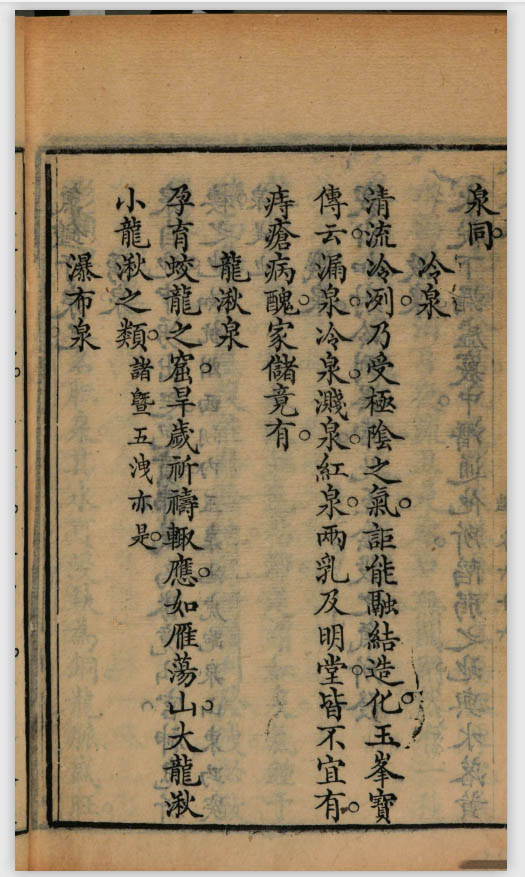 泉同。
冷泉
清流冷冽。乃受極陰之氣。詎能融結造化。玉峯寶
傳云。漏泉。冷泉。濺泉。紅泉。兩乳及明堂。皆不宜有。
痔瘡病醜。家儲竟有。
龍湫泉
孕育蛟龍之窟。旱歲祈禱輙應。如雁蕩山。大龍湫
小龍湫之類。諸暨五洩亦是。
瀑布泉